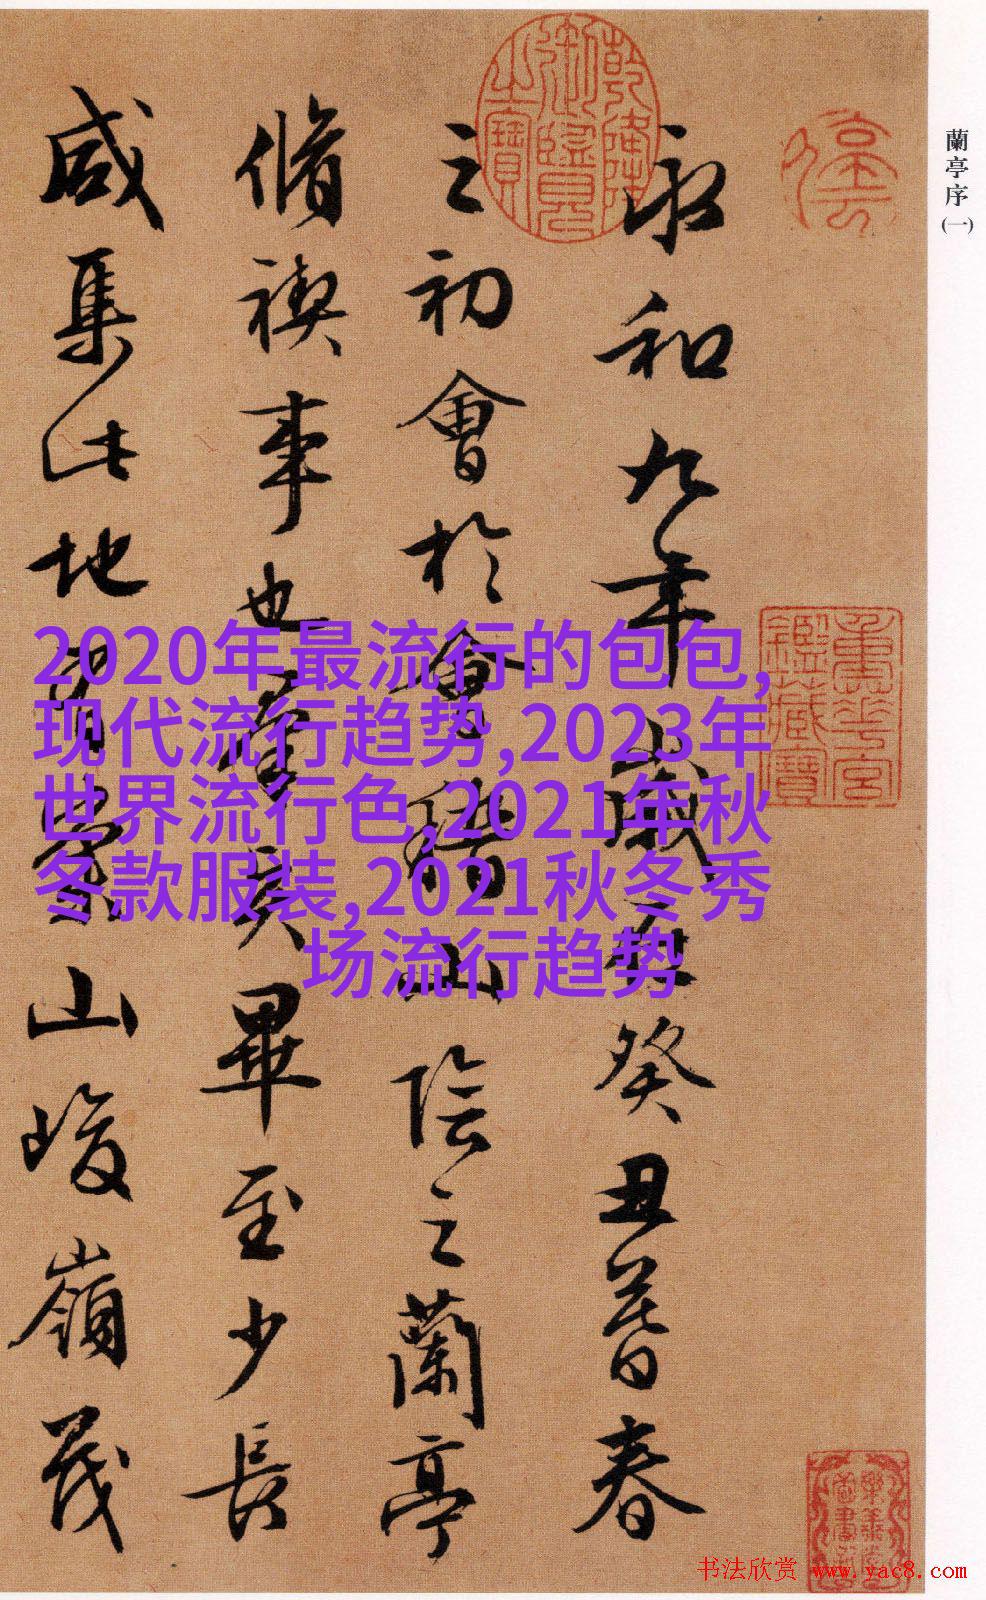 蘭亭序(一)
乾隆御覽之寶
永和九年歲在癸丑暮春
之初會於會稽山陰之蘭亭
脩禊事也羣賢畢至少長
咸集此地有崇山峻嶺茂
重華宮
鑑藏寶
2020年最流行的包包,
现代流行趋势,2023年
世界流行色,2021年秋
冬款服装,2021秋冬秀
场流行趋势
书法欣赏 www.yac8.com